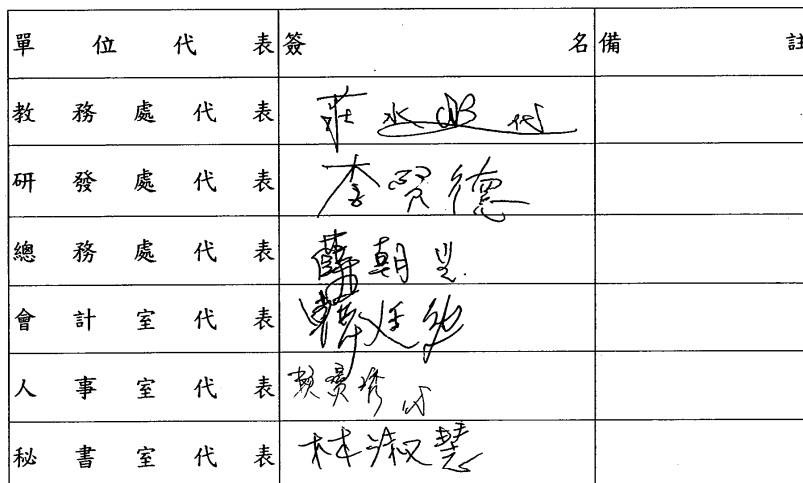 單位代表 簽名 備註
教務處代表 莊水 代
研發處代表 李賢德
總務處代表 薛朝
會計室代表
人事室代表 賴寶秀 代
秘書室代表 林淑慧